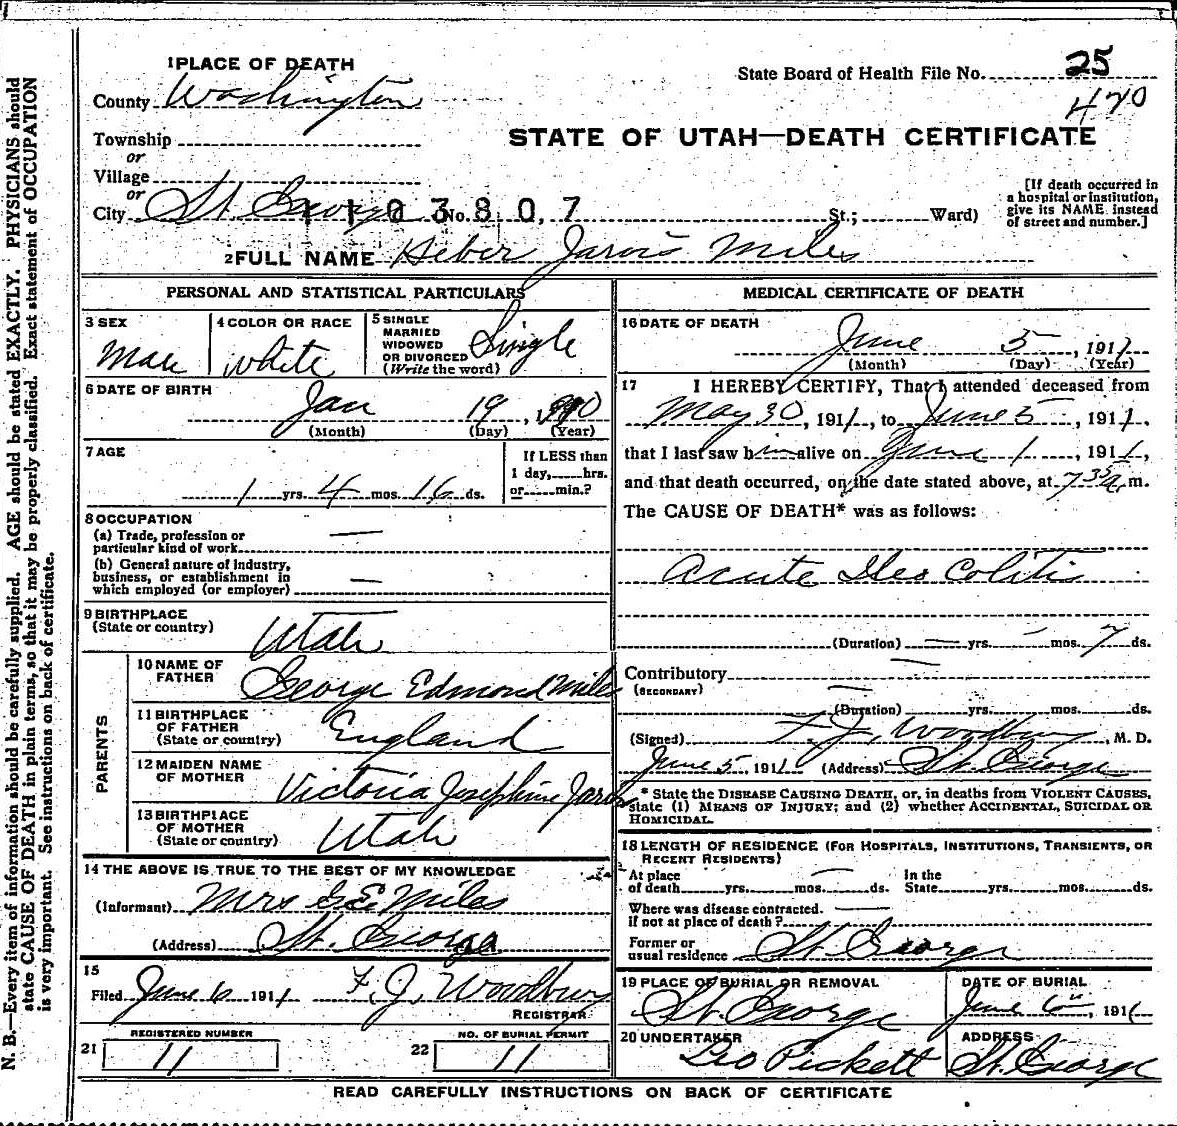 1 PLACE OF DEATH
State Board of Health File No. 25
470
County Washington
STATE OF UTAH—DEATH CERTIFICATE
Township
or
Village
or
City St George 1103807 No. St.; Ward)
[If death occurred in a hospital or institution, give its NAME instead of street and number.]
2 FULL NAME Heber Jarvis Miles
PERSONAL AND STATISTICAL PARTICULARS
3 SEX
Male
4 COLOR OR RACE
White
5 SINGLE MARRIED WIDOWED OR DIVORCED (Write the word)
Single
6 DATE OF BIRTH
Jan 19, 1910
(Month) (Day) (Year)
7 AGE
1 yrs. 4 mos. 16 ds.
If LESS than 1 day, hrs. or min.?
8 OCCUPATION
(a) Trade, profession or particular kind of work —
(b) General nature of Industry, business, or establishment in which employed (or employer) —
9 BIRTHPLACE
(State or country)
Utah
PARENTS
10 NAME OF FATHER
George Edmond Miles
11 BIRTHPLACE OF FATHER (State or country)
England
12 MAIDEN NAME OF MOTHER
Victoria Josephine Jarvis
13 BIRTHPLACE OF MOTHER (State or country)
Utah
14 THE ABOVE IS TRUE TO THE BEST OF MY KNOWLEDGE
(Informant) Mrs G E Miles
(Address) St. George
15
Filed June 6 1911 F. J. Woodbury
REGISTRAR
REGISTERED NUMBER
21 11
NO. OF BURIAL PERMIT
22 11
MEDICAL CERTIFICATE OF DEATH
16 DATE OF DEATH
June 5, 1911
(Month) (Day) (Year)
17 I HEREBY CERTIFY, That I attended deceased from
May 30, 1911, to June 5, 1911,
that I last saw him alive on June 1, 1911,
and that death occurred, on the date stated above, at 7 35 a. m.
The CAUSE OF DEATH* was as follows:
Acute Ileo Colitis
(Duration) — yrs. — mos. 7 ds.
Contributory —
(SECONDARY)
(Duration) yrs. mos. ds.
(Signed) F. J. Woodbury, M. D.
June 5, 1911 (Address) St. George
* State the DISEASE CAUSING DEATH, or, in deaths from VIOLENT CAUSES, state (1) MEANS OF INJURY; and (2) whether ACCIDENTAL, SUICIDAL OR HOMICIDAL.
18 LENGTH OF RESIDENCE (FOR HOSPITALS, INSTITUTIONS, TRANSIENTS, OR RECENT RESIDENTS)
At place of death yrs. mos. — ds. In the State yrs. mos. ds.
Where was disease contracted. If not at place of death? —
Former or usual residence St George
19 PLACE OF BURIAL OR REMOVAL
St. George
DATE OF BURIAL
June 6th, 1911
20 UNDERTAKER
Geo Pickett
ADDRESS
St. George
READ CAREFULLY INSTRUCTIONS ON BACK OF CERTIFICATE
N. B.—Every item of information should be carefully supplied. AGE should be stated EXACTLY. PHYSICIANS should
state CAUSE OF DEATH in plain terms, so that it may be properly classified. Exact statement of OCCUPATION
is very important. See instructions on back of certificate.